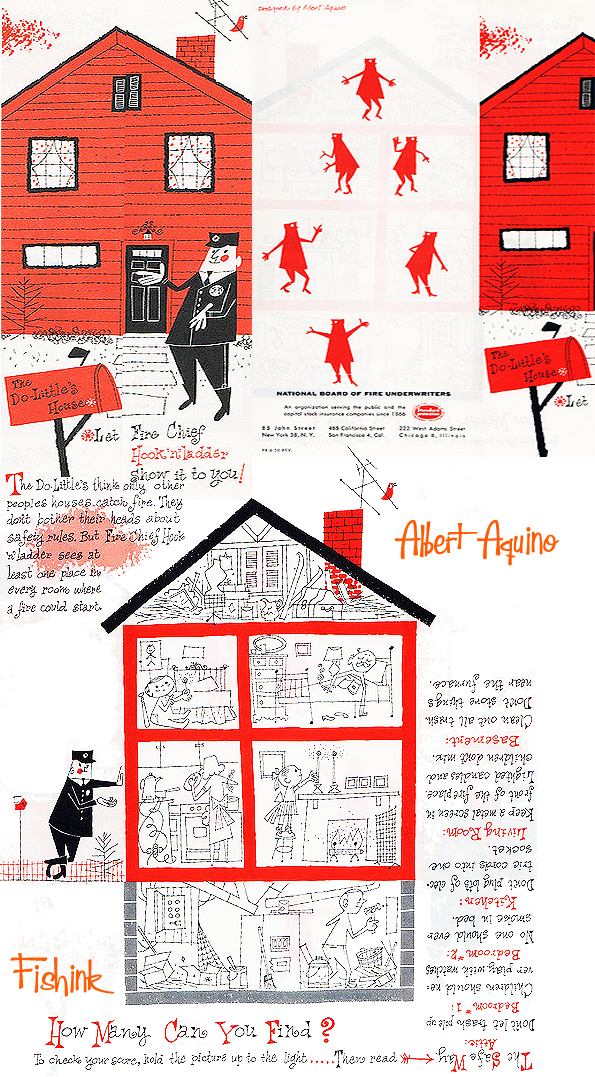 Designed by Albert Aquino
The
Do-Little's
House*
*Let Fire Chief
Hook'n'ladder
show it to you!
NATIONAL BOARD OF FIRE UNDERWRITERS
An organization serving the public and the
capital stock insurance companies since 1866
85 John Street
New York 38, N.Y.
465 California Street
San Francisco 4, Cal.
222 West Adams Street
Chicago 6, Illinois
The
Do-Little's
House*
*Let
The Do-Little's think only other
peoples houses catch fire. They
don't bother their heads about
safety rules. But Fire Chief Hook
'n' ladder sees at
least one place in
every room where
a fire could start.
Albert Aquino
Fishink
How Many Can You Find?
To check your score, hold the picture up to the light ..... Then read
The Safe Way
Attic:
Don't let trash pile up
Bedroom *1:
Children should ne-
ver play with matches
Bedroom *2:
No one should ever
smoke in bed.
Kitchen:
Don't plug lots of elec-
tric cords into one
socket
Living Room:
Keep a metal screen in
front of the fireplace
lighted candles and
children don't mix.
Basement:
Clean out all trash
Don't store things
near the furnace.